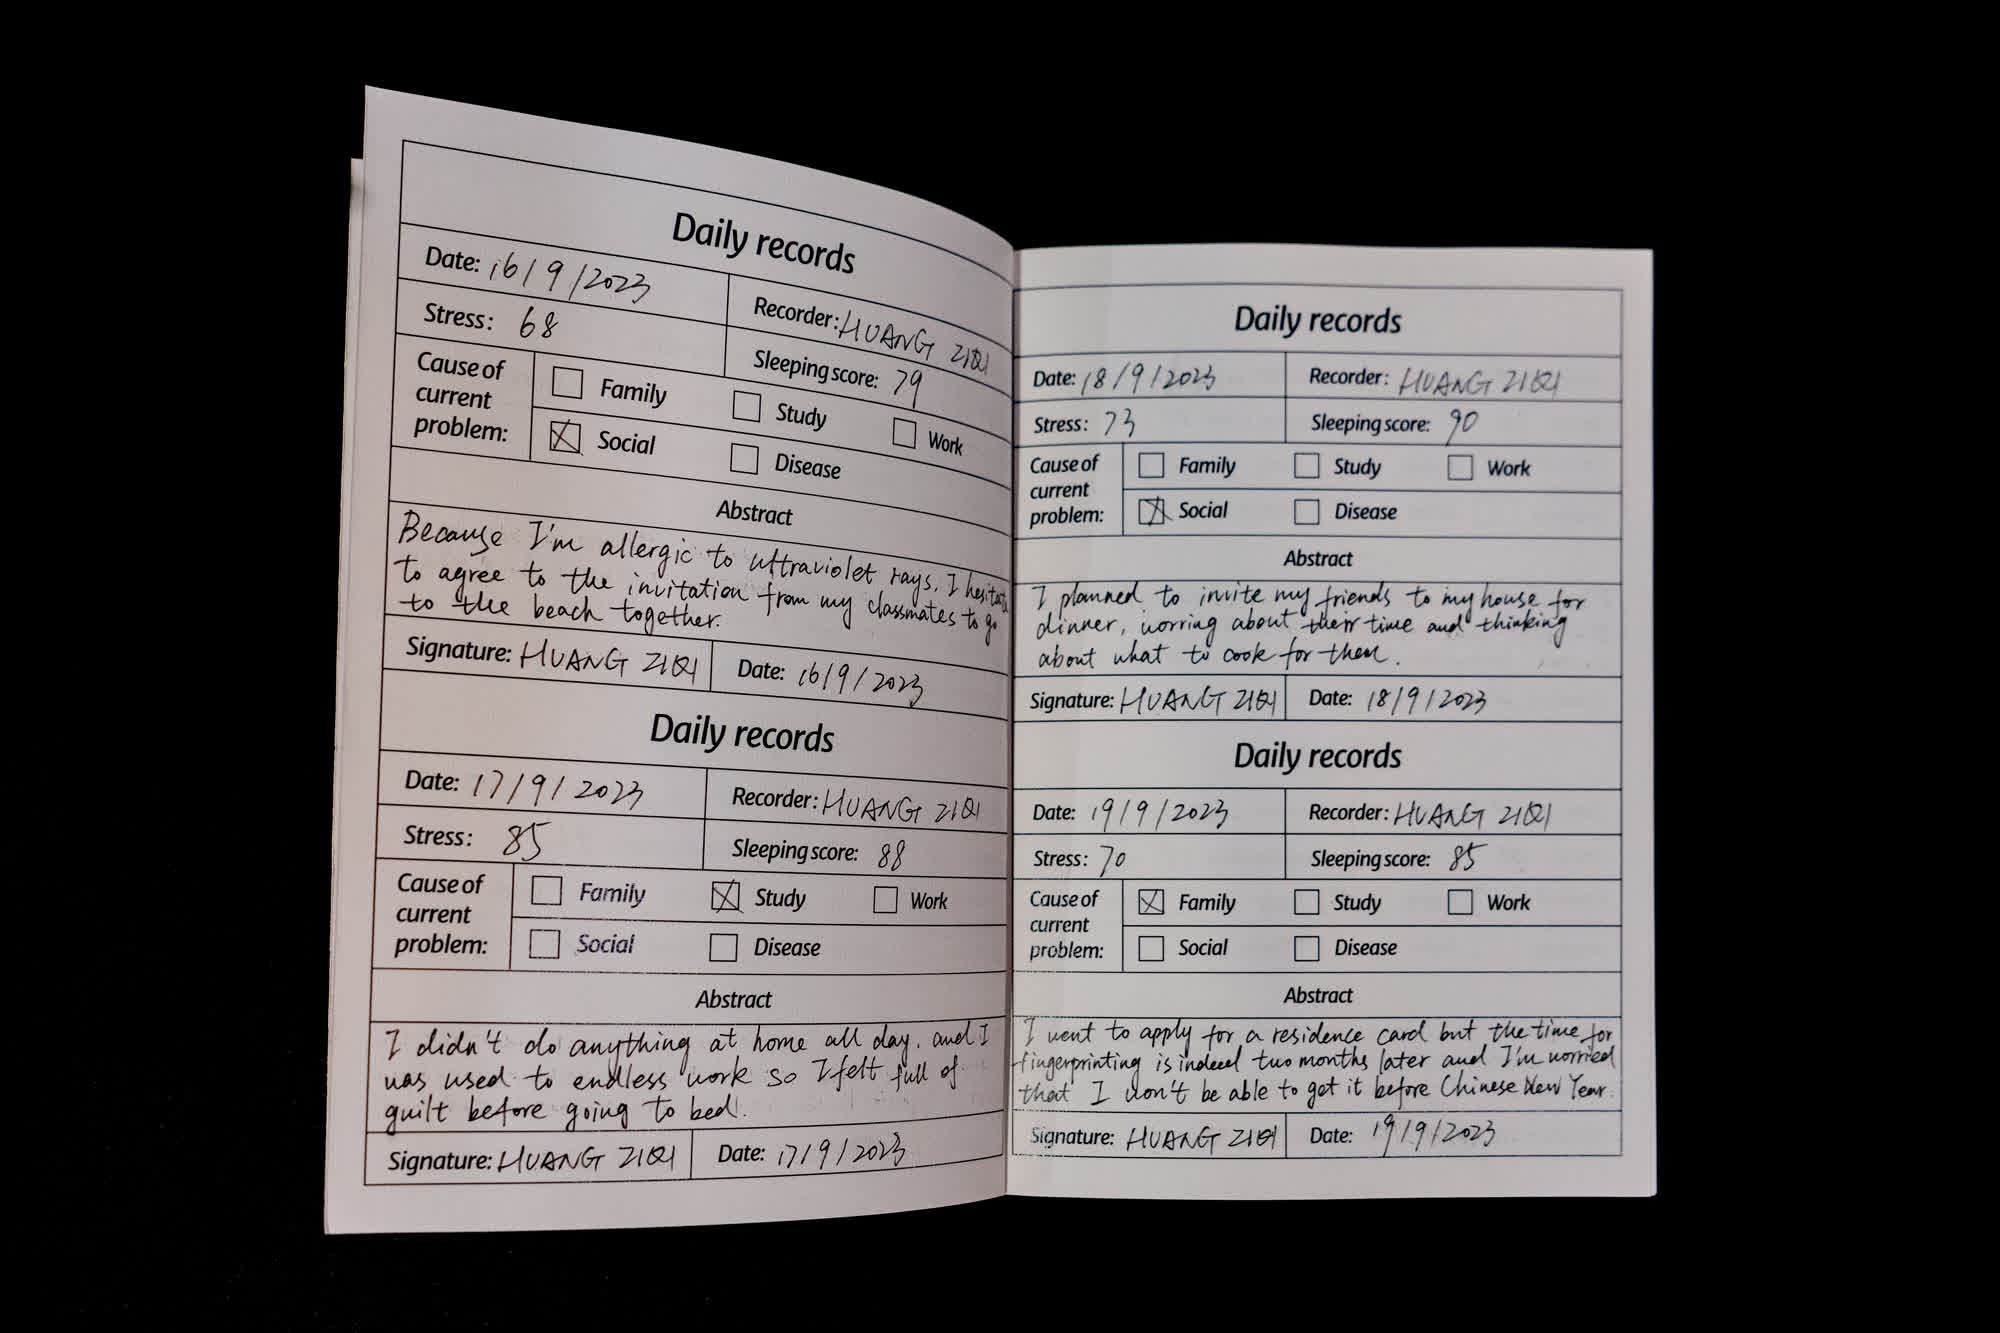 Daily records
Date: 16/9/2023
Recorder: HUANG ZIQI
Stress: 68
Sleeping score: 79
Cause of
current
problem:
Family
Study
Work
Social
Disease
Abstract
Because I'm allergic to ultraviolet rays, I hesitate
to agree to the invitation from my classmates to go
to the beach together.
Signature: HUANG ZIQI
Date: 16/9/2023
Daily records
Date: 17/9/2023
Recorder: HUANG ZIQI
Stress: 85
Sleeping score: 88
Cause of
current
problem:
Family
Study
Work
Social
Disease
Abstract
I didn't do anything at home all day, and I
was used to endless work so I felt full of
guilt before going to bed.
Signature: HUANG ZIQI
Date: 17/9/2023
Daily records
Date: 18/9/2023
Recorder: HUANG ZIQI
Stress: 73
Sleeping score: 90
Cause of
current
problem:
Family
Study
Work
Social
Disease
Abstract
I planned to invite my friends to my house for
dinner, worring about their time and thinking
about what to cook for them.
Signature: HUANG ZIQI
Date: 18/9/2023
Daily records
Date: 19/9/2023
Recorder: HUANG ZIQI
Stress: 70
Sleeping score: 85
Cause of
current
problem:
Family
Study
Work
Social
Disease
Abstract
I went to apply for a residence card but the time for
fingerprinting is indeed two months later and I'm worried
that I won't be able to get it before Chinese New Year.
Signature: HUANG ZIQI
Date: 19/9/2023